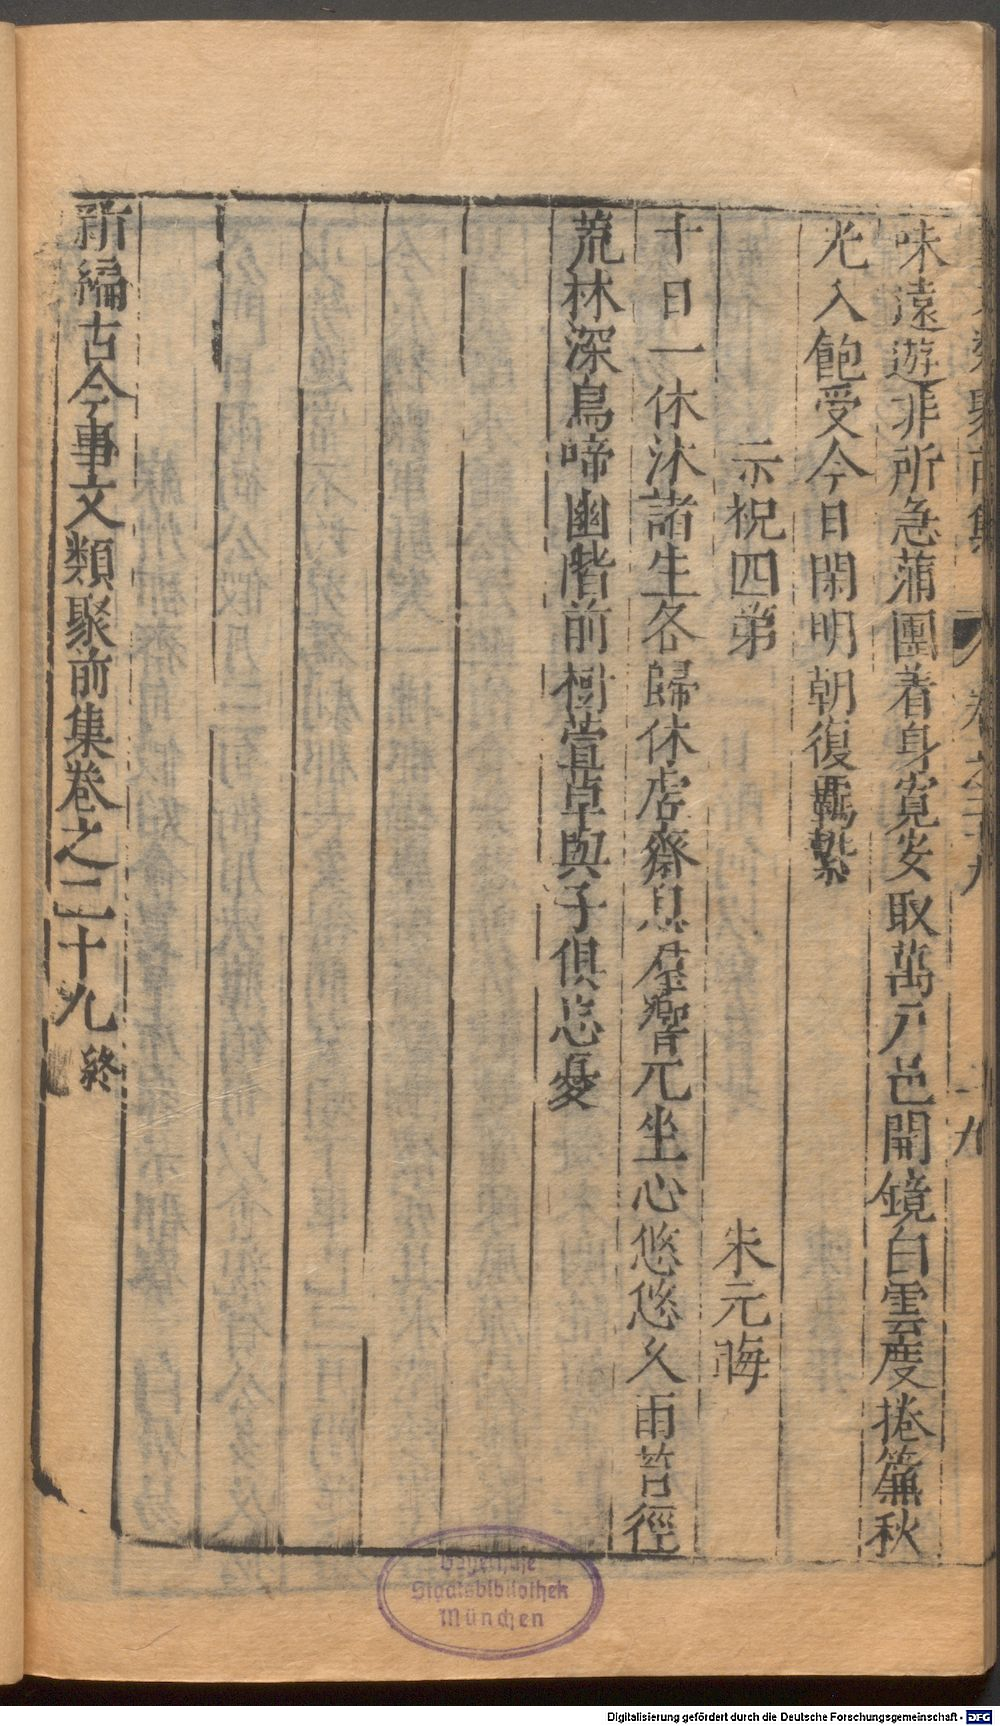 味遠遊非所急蒲團着身寛安取萬戶邑開鏡白雲度捲簾秋
光入飽受今日閑明朝復羈縶
示祝四弟 朱元晦
十日一休沐諸生各歸休虗齋息羣響元坐心悠悠久雨苔徑
荒林深鳥啼幽階前樹萱草與子俱忘憂
新編古今事文類聚前集卷之二十九 終
Bayerische
Staatsbibliothek
München
Digitalisierung gefördert durch die Deutsche Forschungsgemeinschaft - DFG